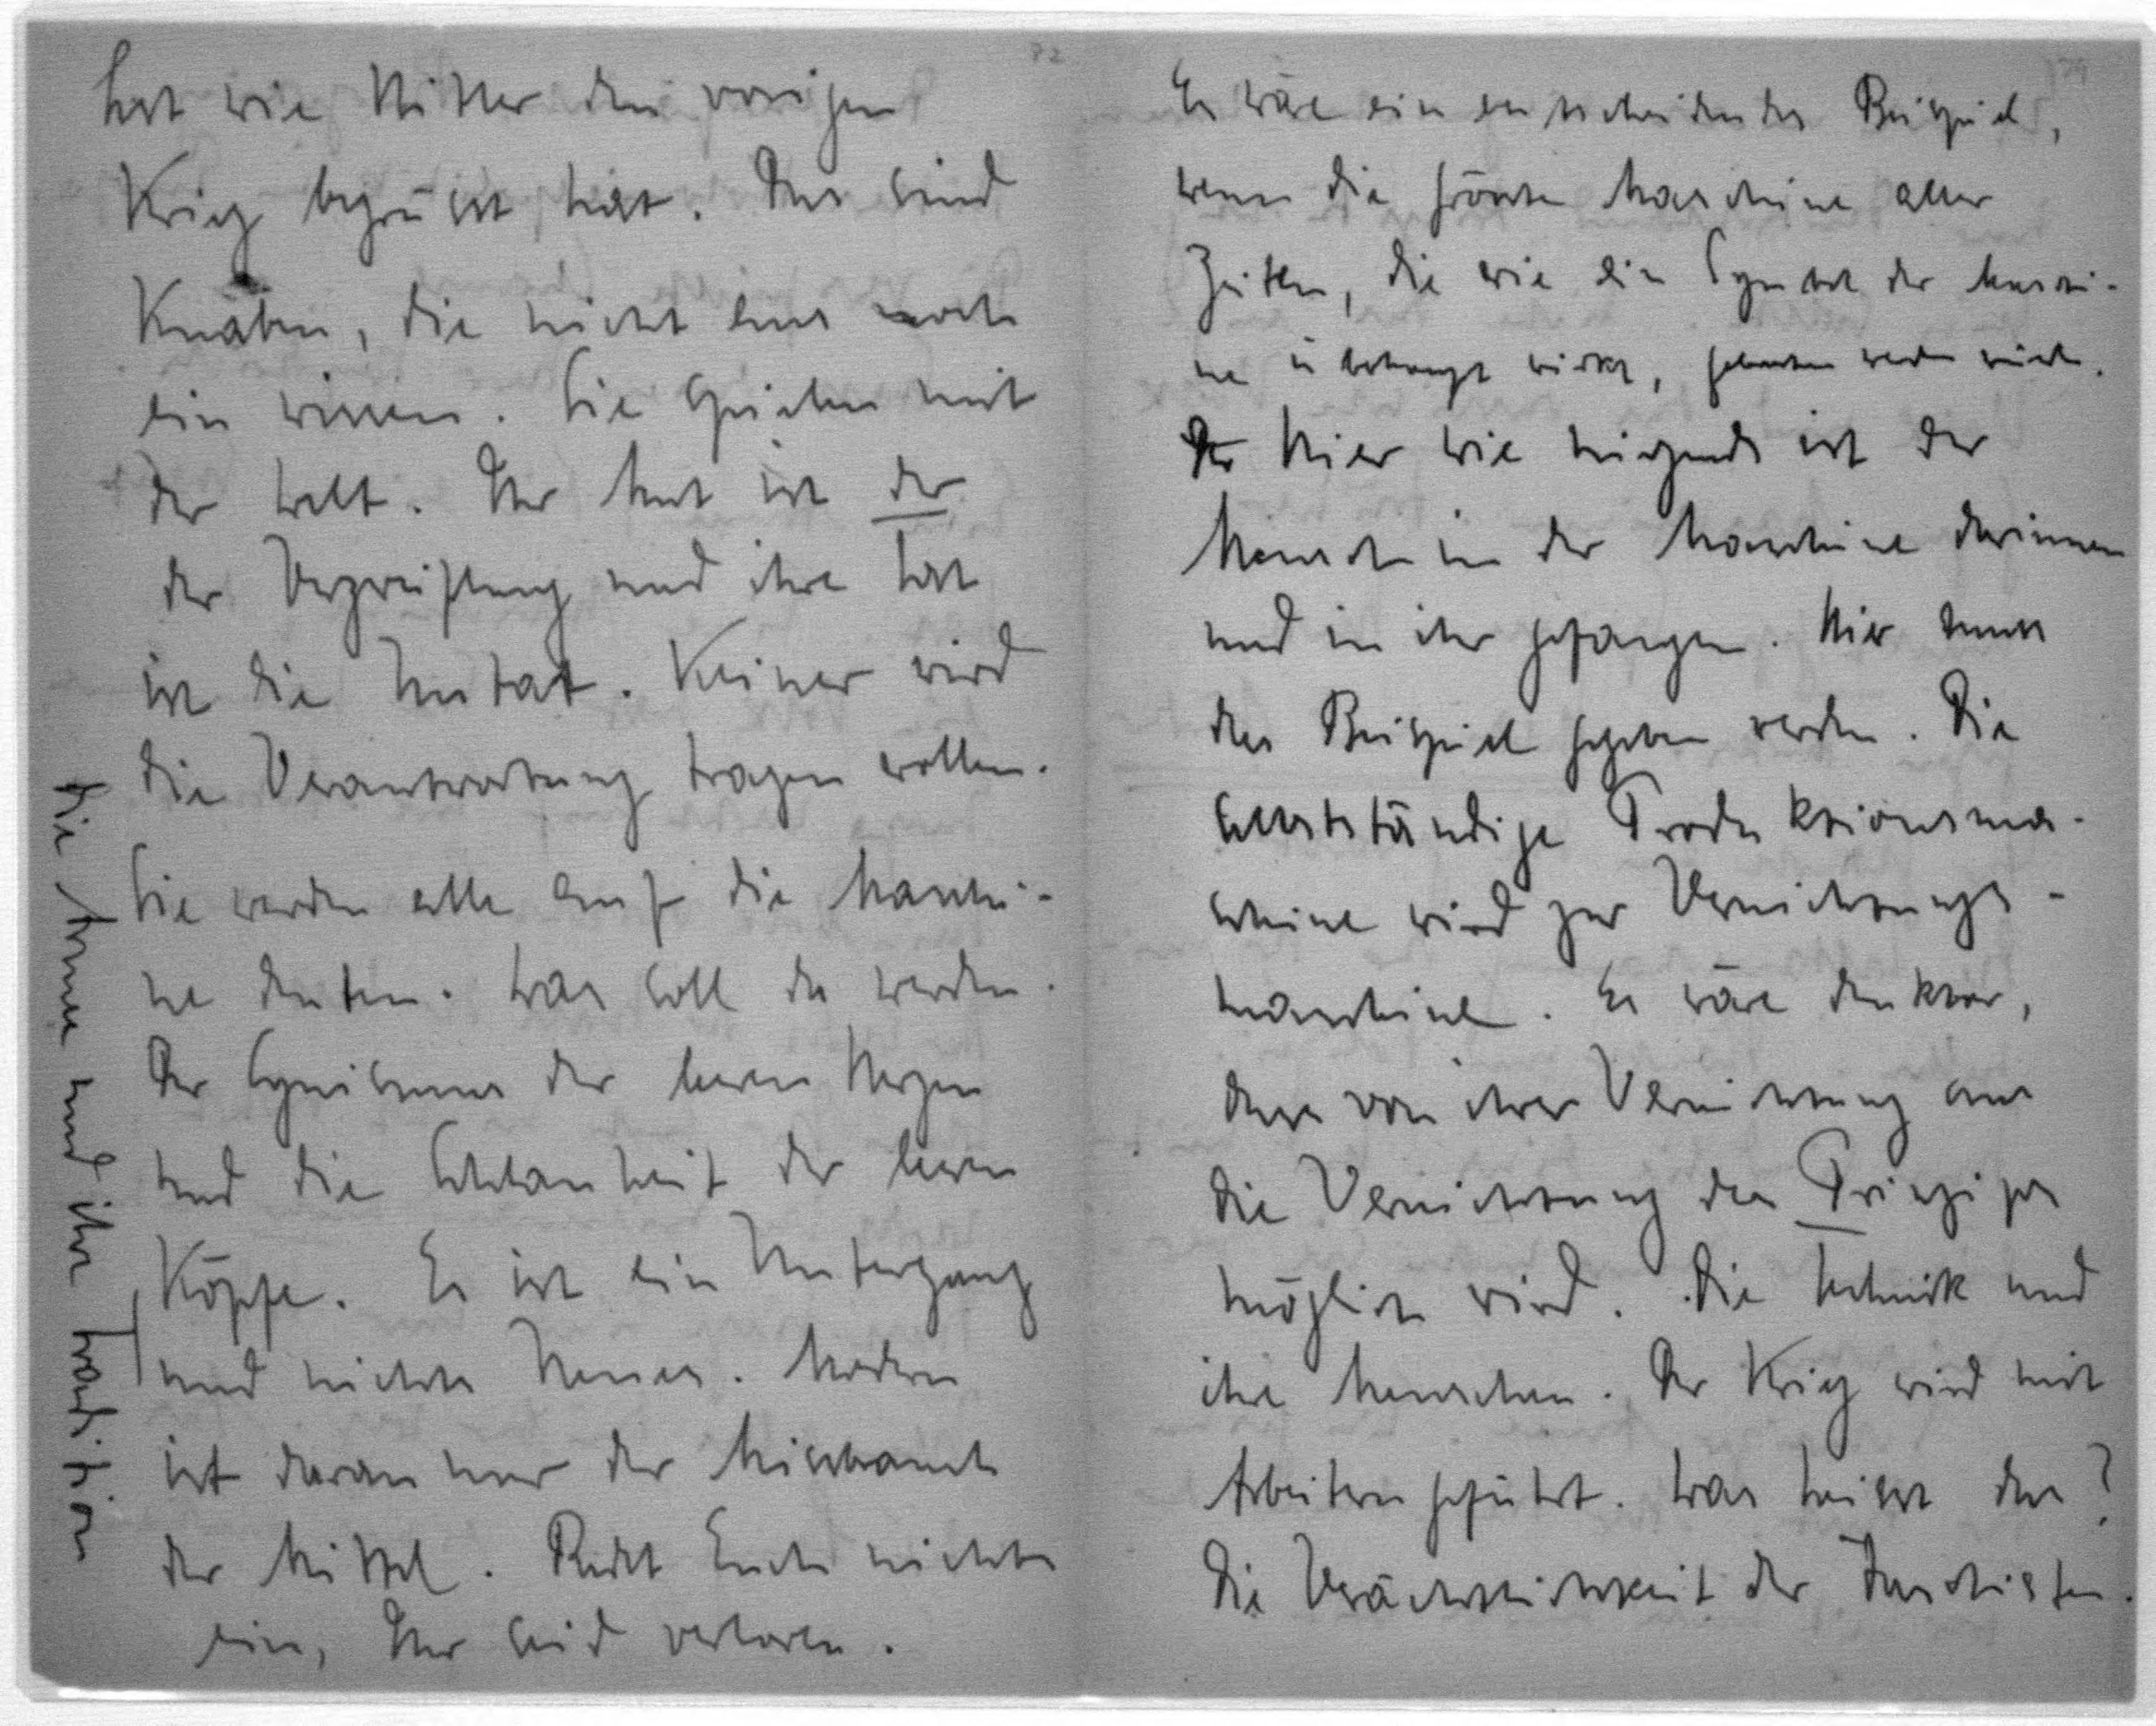 hat wie Hitler den vorigen
Krieg begrüsst hat. Das sind
Knaben, die nicht aus noch
ein wissen. Sie spielen mit
der Welt. Ihr Mut ist der
der Verzweiflung und ihre Tat
ist die Untat. Keiner wird
die Verantwortung tragen wollen.
Sie werden alle auf die Maschi-
ne deuten. Was soll da werden.
Der Cynismus der leeren Herzen
und die Schlauheit der leeren
Köpfe. Es ist ein Untergang
und nichts Neues. Modern
ist daran nur der Missbrauch
der Mittel. Redet Euch nichts
ein, Ihr seid verloren.
Die Armee und ihre Tradition
72
74
Es wäre ein entscheidendes Beispiel,
wenn die grösste Maschine aller
Zeiten, die wie ein Symbol der Maschi-
ne überhaupt wirkt, gebrochen werden würde.
Der Hier wie nirgends ist der
Mensch in der Maschine darinnen
und in ihr gefangen. Hier muss
das Beispiel gegeben werden. Die
selbstständige Produktionsma-
schine wird zur Vernichtungs-
maschine. Es wäre denkbar,
dass von ihrer Vernichtung aus
die Vernichtung des Prinzips
möglich wird. Die Technik und
ihre Menschen. Der Krieg wird mit
Arbeitern geführt. Was heisst das?
Die Verächtlichkeit der